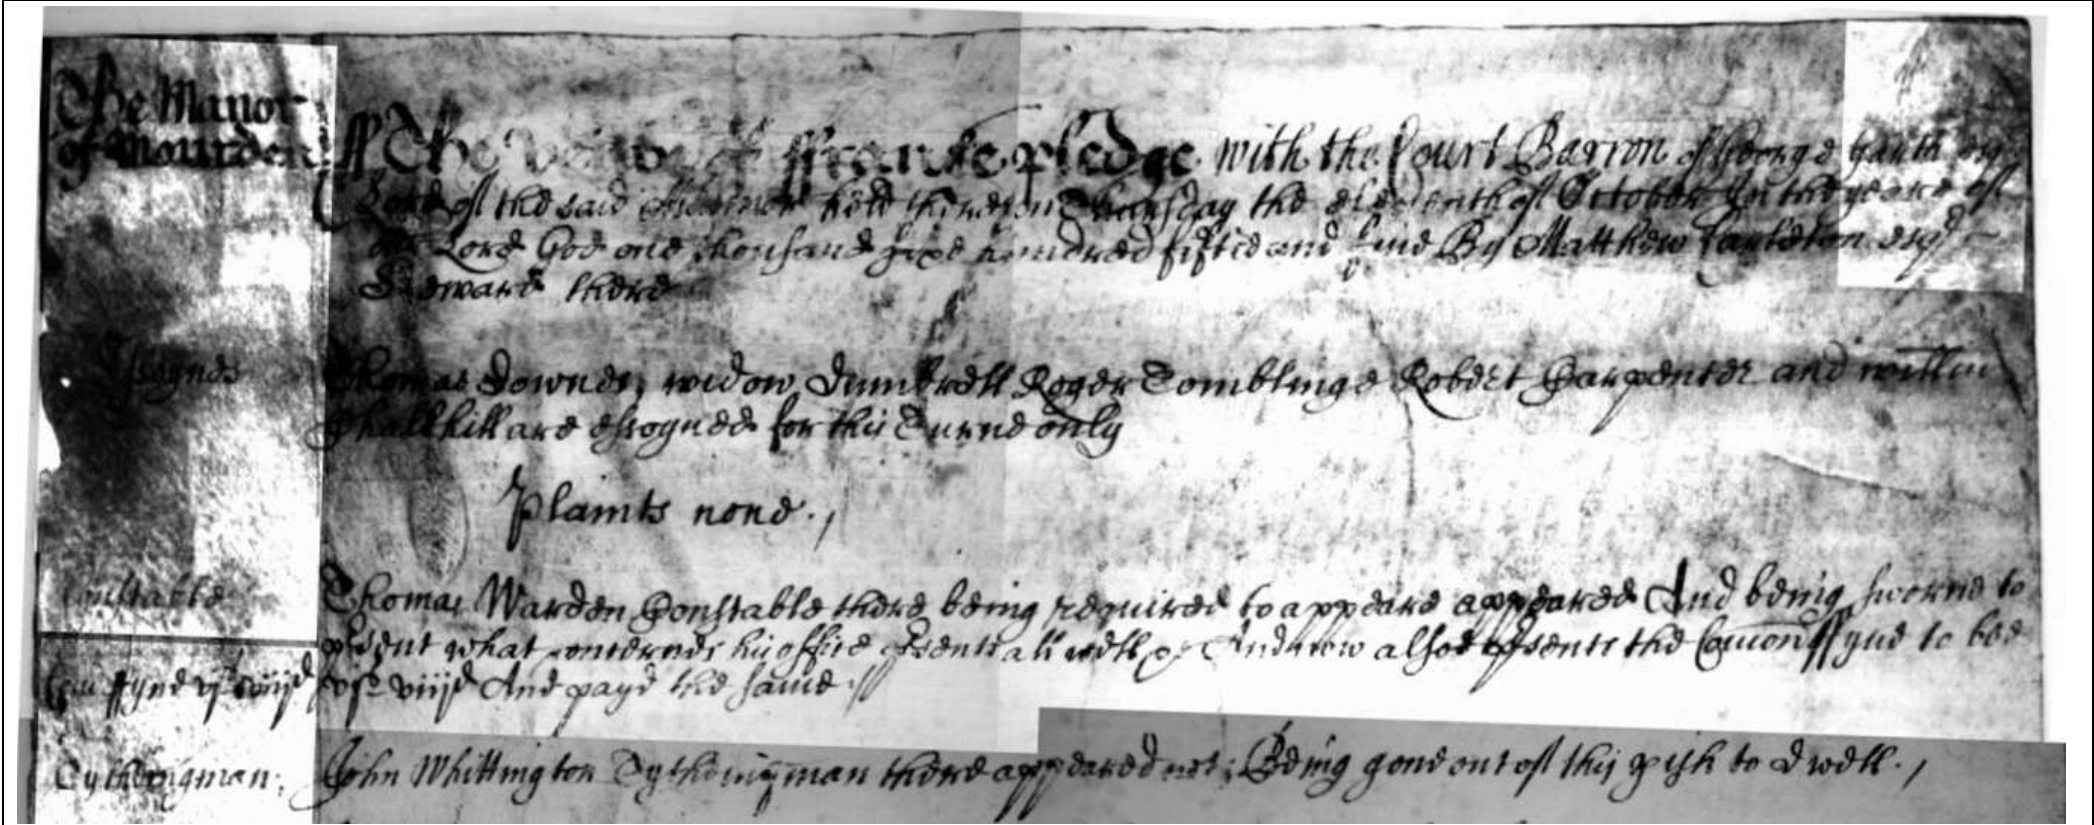 The Manor
of Mourden
The veiwe of ffrancke pledge with the Court Barron of George Garth esqr
Lord of the said Mannor held there on Thursday the eleaventh of October In the yeare of
our Lord God one thousand sixe hundred fiftie and five By Matthew Carleton esqr
Steward there
Essoynes
Thomas Downes, widow Dumbrell Roger Tomblinge Robert Carpenter and willm
are essoyned for this Turne only
Plaints none.
Constable
Thomas Warden Constable there being required to appeare appeared And being sworne to
psent what concernes his office psents all well And now alsoe psents the Comon ffyne to bee
Com ffyne vjs viijd
vjs viijd And payd the same.
Tythingman:
John Whittington Tythingman there appeared not; Being gone out of this pish to dwell.